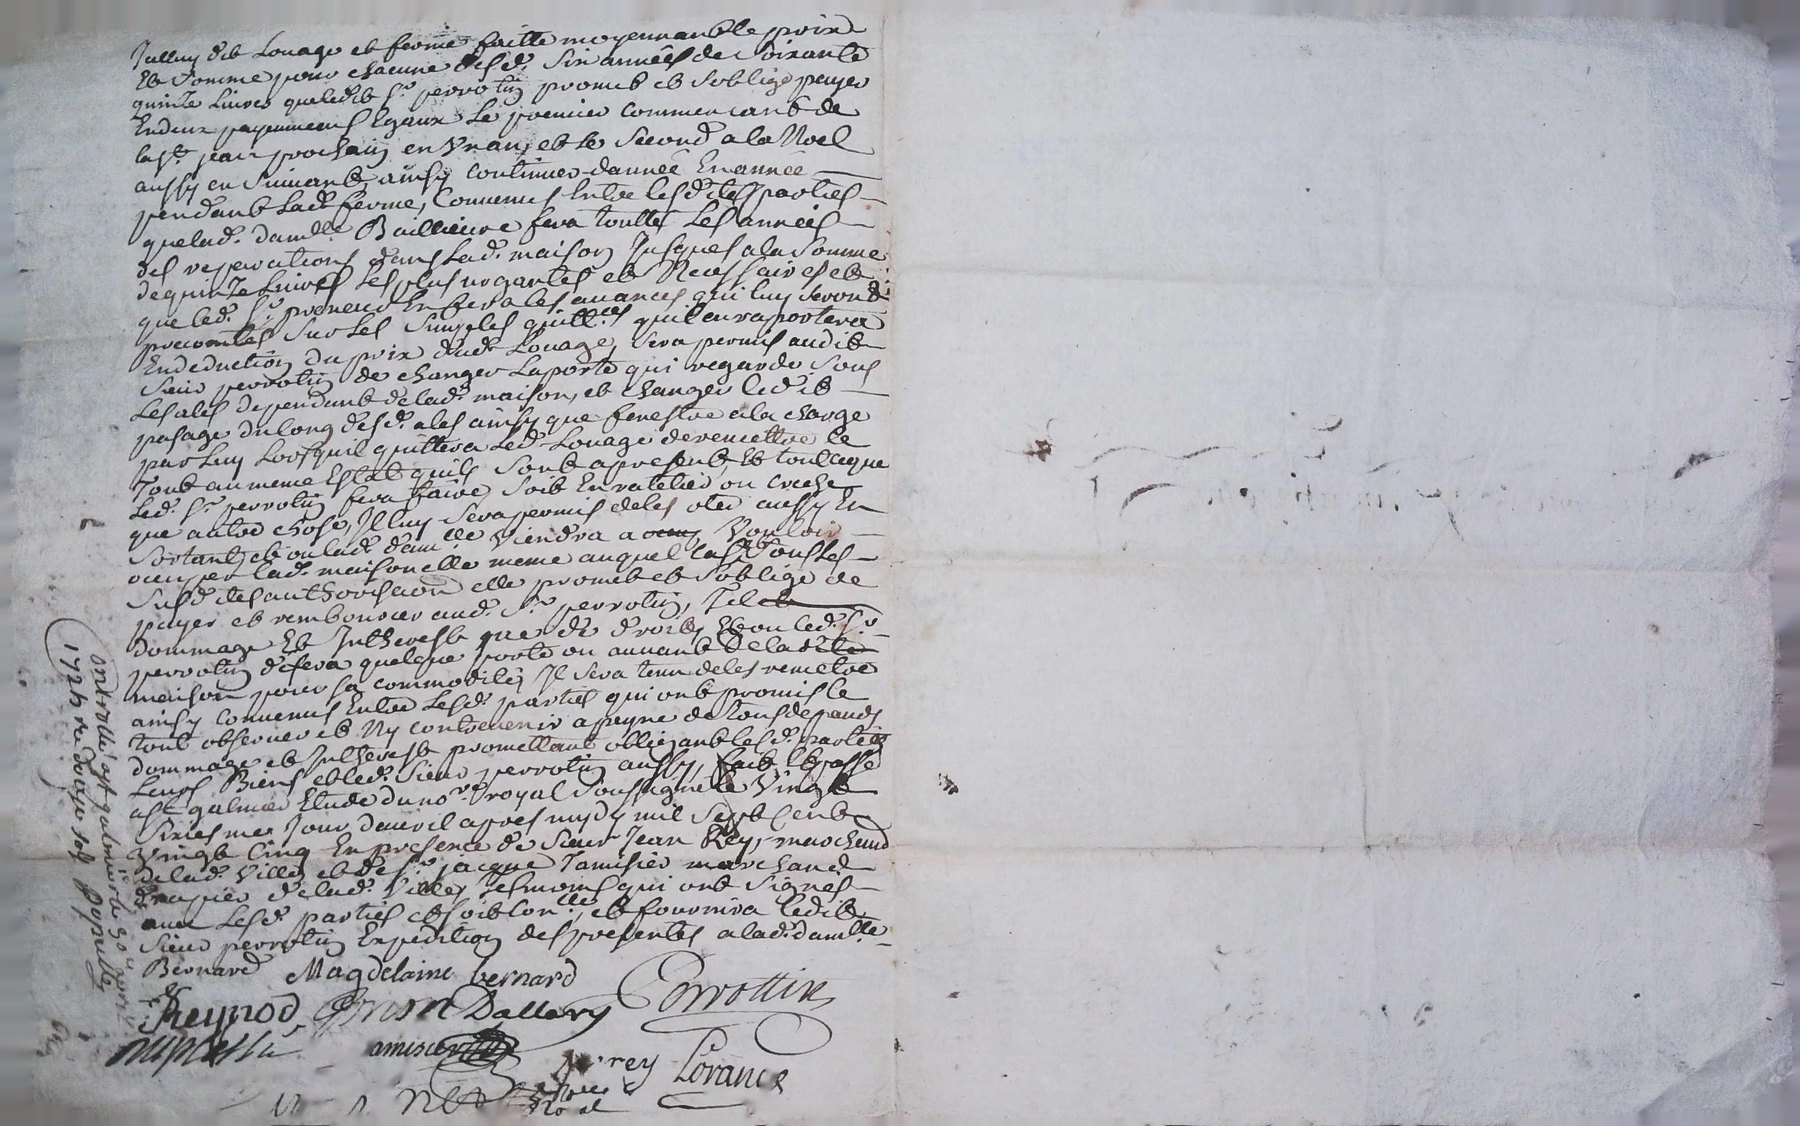 Julluy dit Louage et ferme faitte moyennant le prix
Et Somme pour chacune desd. Six années de Soixante
quinze Livres queledit Sr. perrotin promet et Soblige payer
Endeux payements Egaux Le premier commencant de
la St. jean prochain en Un an, et le Second a la Noel
aussy en Suivant, ainsy continuer dannée En année
pendant Lad. ferme, Convenus Entre lesdites parties
quelad. damlle. Bailleure fera touttes Les années
des reparations dans Lad. maison Jusques ala Somme
dequinze Livres Les plus urgantes et Necessaires et
que led. Sr. preneur En fera les avances qui luy Seront
precomtés Sur Les Simples quittces. quil en raportera
Endeduction du prix dud. Louage, Sera permis audit
Sieur perrotin de changer Laporte qui regarde Sous
Les ales dependant delad. maison, et changer ledit
pasage du long desd. ales ainsy que fenestre ala charge
par Luy Lorsquil quittera Led. Louage deremettre le
Tout au meme Estat quils Sont apresent, Et tout ceque
Led. Sr. perrotin fera faire, Soit En ratelier ou creche
que autre chose, Il luy Sera permis deles oter aussy En
Sortant, et ou lad. damlle. Viendra a Vouloir
occuper lad. maison elle meme auquel cas
Susdites elle promet et Soblige de
payer et rembourcer aud. Sr. perrotin, Tel
dommage Et Intherest que de droit, Et ou led. Sr.
perrotin defera quelque porte ou auvant deladite
maison pour Sa commodité, Il Sera tenu deles remetre
ainsy Convenus Entre Lesd. parties qui ont promis le
tout observer et Ny contrevenir apeyne de tous depands
dommage et Intherest promettant obligeant lesd. parties
Leurs Biens et led. Sieur perrotin aussy, fait Et passé
a St. galmier Etude du nore. royal Soussigné le Vingt
Sixiesme Jour davril apres midy mil Sept Cent
Vingt Cinq En presence de Sieur Jean Rey, marchand
delad. Ville, et de Sr. jacque Tamisier marchand
drapier delad. Ville, Tesmoins qui ont Signés
avec Lesd. parties et Soit conlle., et fournira ledit
Sieur perrotin Expedition des presentes alad. damlle.
Bernard Magdelaine bernard
Reynod Dallery Perrottin
amisier rey Lorance
Controllé a St galmier le 30e avril
1725 Reçu douze sols Dupuelly